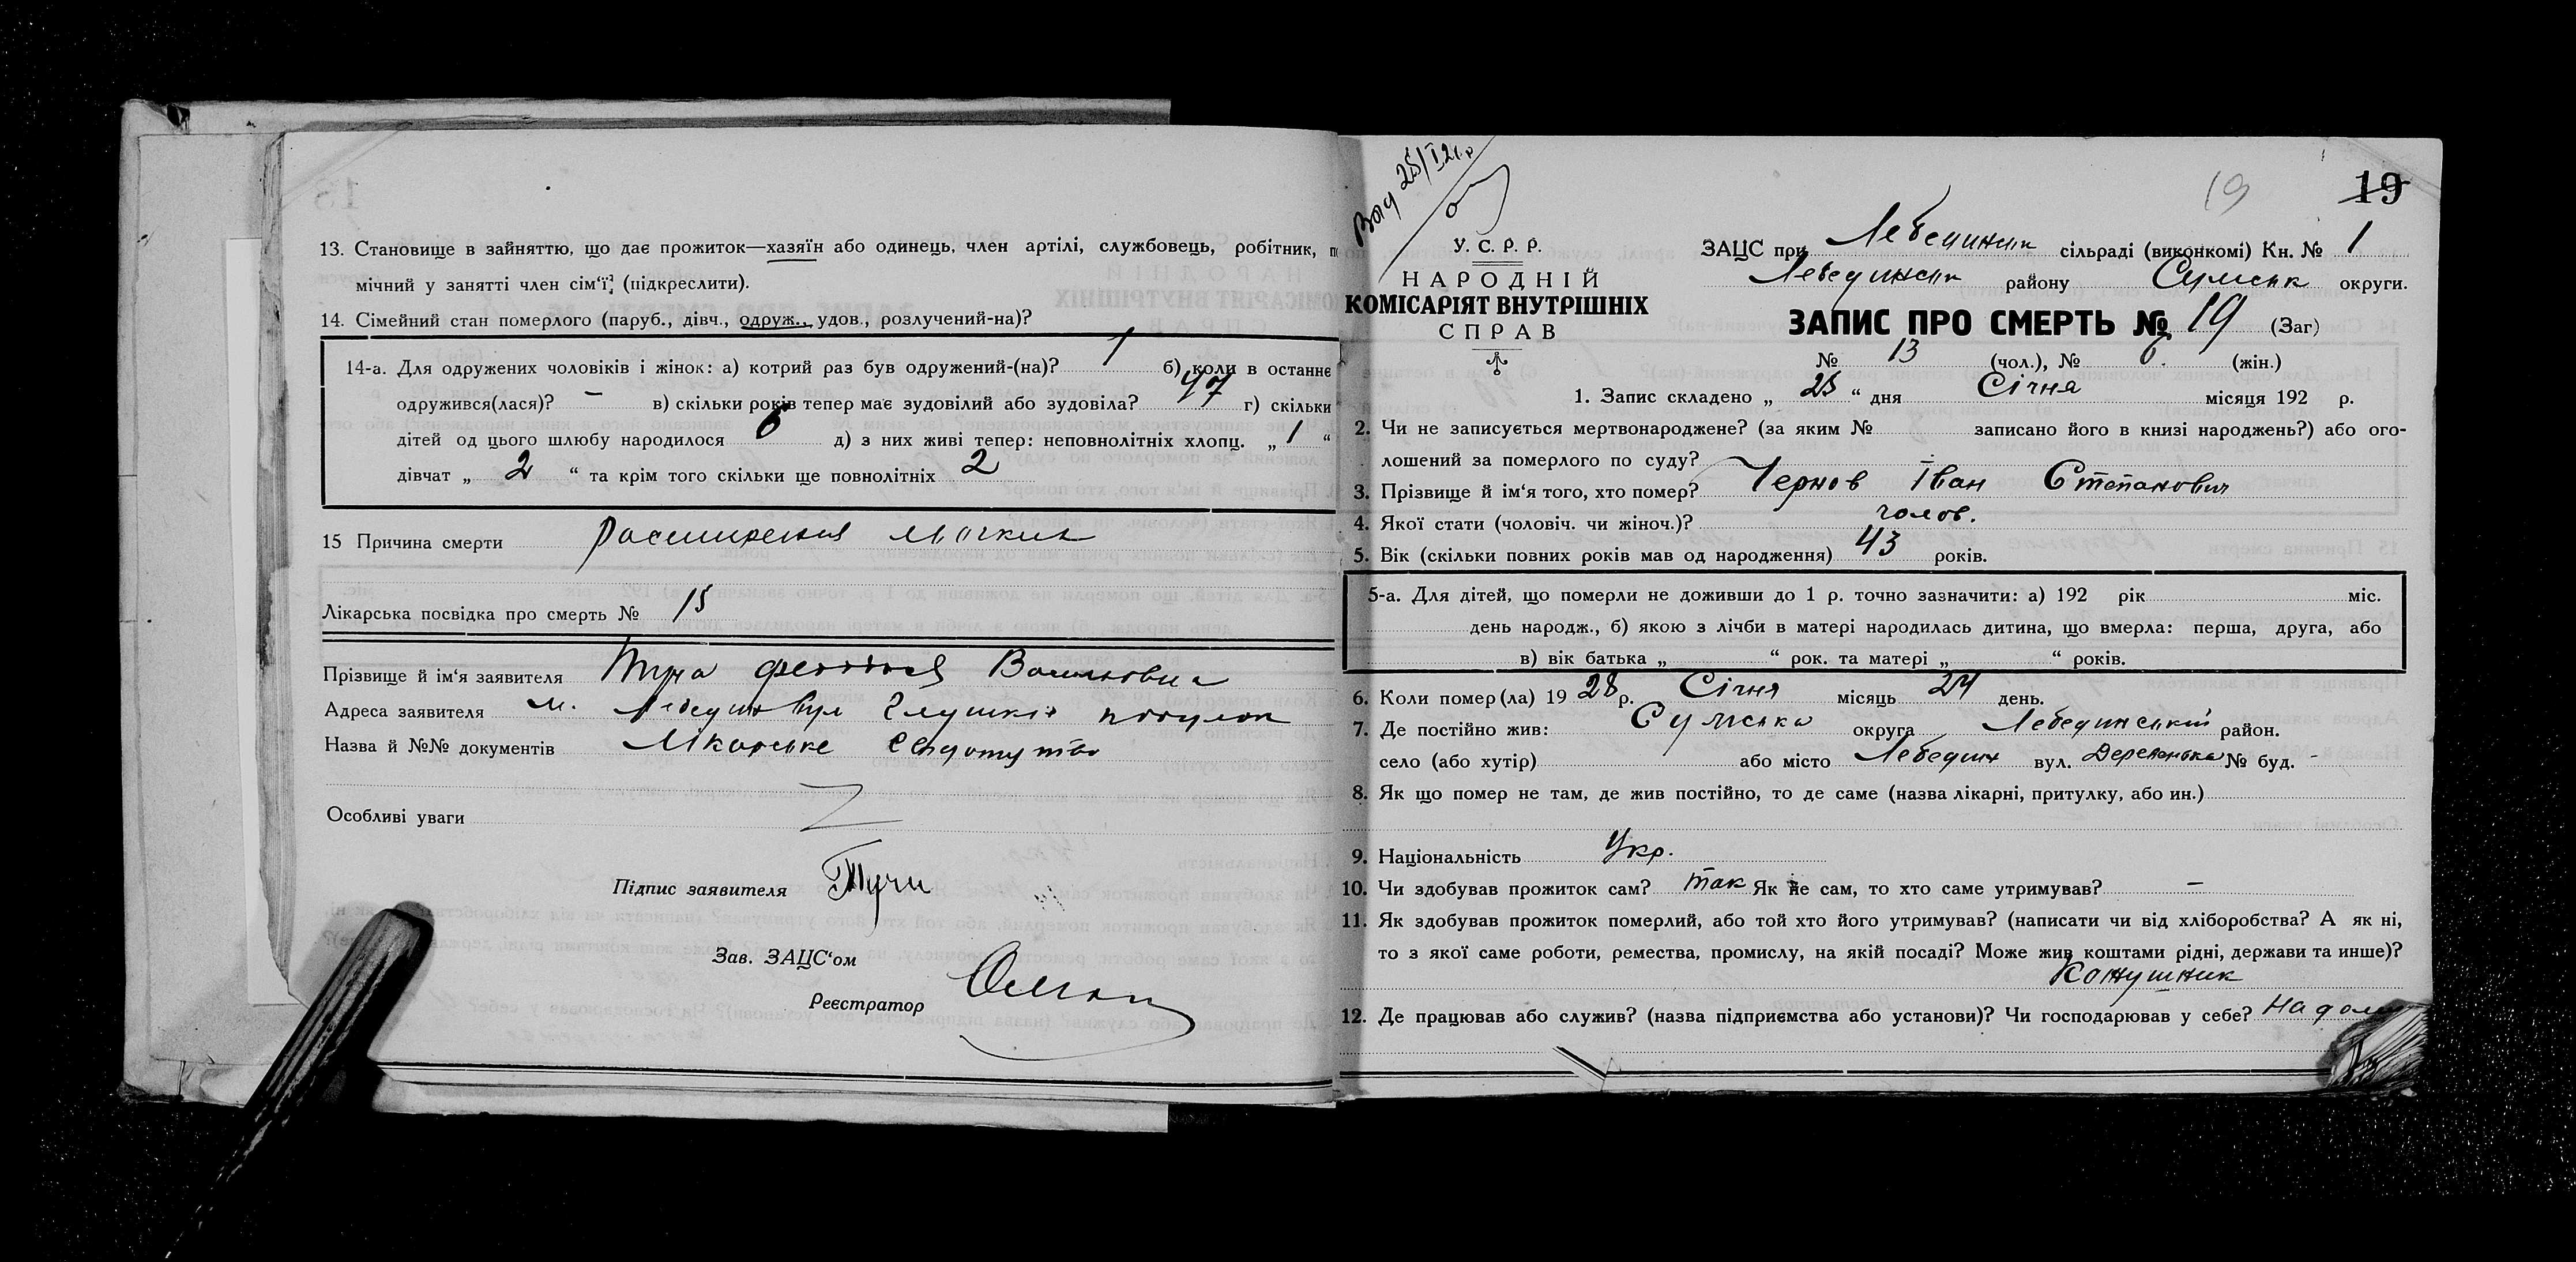 13. Становище в зайняттю, що дає прожиток—хазяїн або одинець, член артілі, службовець, робітник,
мічний у занятті член сім'ї; (підкреслити).
14. Сімейний стан померлого (паруб., дівч., одруж., удов., розлучений-на)?
14-а. Для одружених чоловіків і жінок: а) котрий раз був одружений-(на)? 1 б) коли в останнє
одружився(лася)? – в) скільки років тепер має зудовілий або зудовіла? 47 г) скільки
дітей од цього шлюбу народилося 6 д) з них живі тепер: неповнолітніх хлопц. „ 1 “
дівчат „ 2 “ та крім того скільки ще повнолітніх 2
15 Причина смерти
Лікарська посвідка про смерть № 15
Прізвище й ім'я заявителя
Адреса заявителя м.
Назва й №№ документів Лікарське
Особливі уваги
Підпис заявителя
Зав. ЗАЦС'ом
Реєстратор
19
19
У. С. Р. Р.
НАРОДНІЙ
КОМІСАРІЯТ ВНУТРІШНІХ
СПРАВ
ЗАЦС при Лебединськ сільраді (виконкомі) Кн. № 1
Лебединськ району Сумськ округи.
ЗАПИС ПРО СМЕРТЬ № 19 (Заг)
№ 13 (чол.), № 6. (жін.)
1. Запис складено „ 25 “ дня Січня місяця 192 р.
2. Чи не записується мертвонароджене? (за яким № записано його в книзі народжень?) або ого-
лошений за померлого по суду?
3. Прізвище й ім'я того, хто помер? Чернов Іван Степанович
4. Якої стати (чоловіч. чи жіноч.)? чолов.
5. Вік (скільки повних років мав од народження) 43 років.
5-а. Для дітей, що померли не доживши до 1 р. точно зазначити: а) 192 рік міс.
день народж., б) якою з лічби в матері народилась дитина, що вмерла: перша, друга, або
в) вік батька „ “ рок. та матері „ “ років.
6. Коли помер(ла) 19 28 р. Січня місяць 24 день.
7. Де постійно жив: Сумська округа Лебединський район.
село (або хутір) або місто Лебедин вул. № буд. -
8. Як що помер не там, де жив постійно, то де саме (назва лікарні, притулку, або ин.)
9. Національність Укр.
10. Чи здобував прожиток сам? так Як не сам, то хто саме утримував? –
11. Як здобував прожиток померлий, або той хто його утримував? (написати чи від хліборобства? А як ні,
то з якої саме роботи, ремества, промислу, на якій посаді? Може жив коштами рідні, держави та инше)?
Кожушник
12. Де працював або служив? (назва підприємства або установи)? Чи господарював у себе? На дому